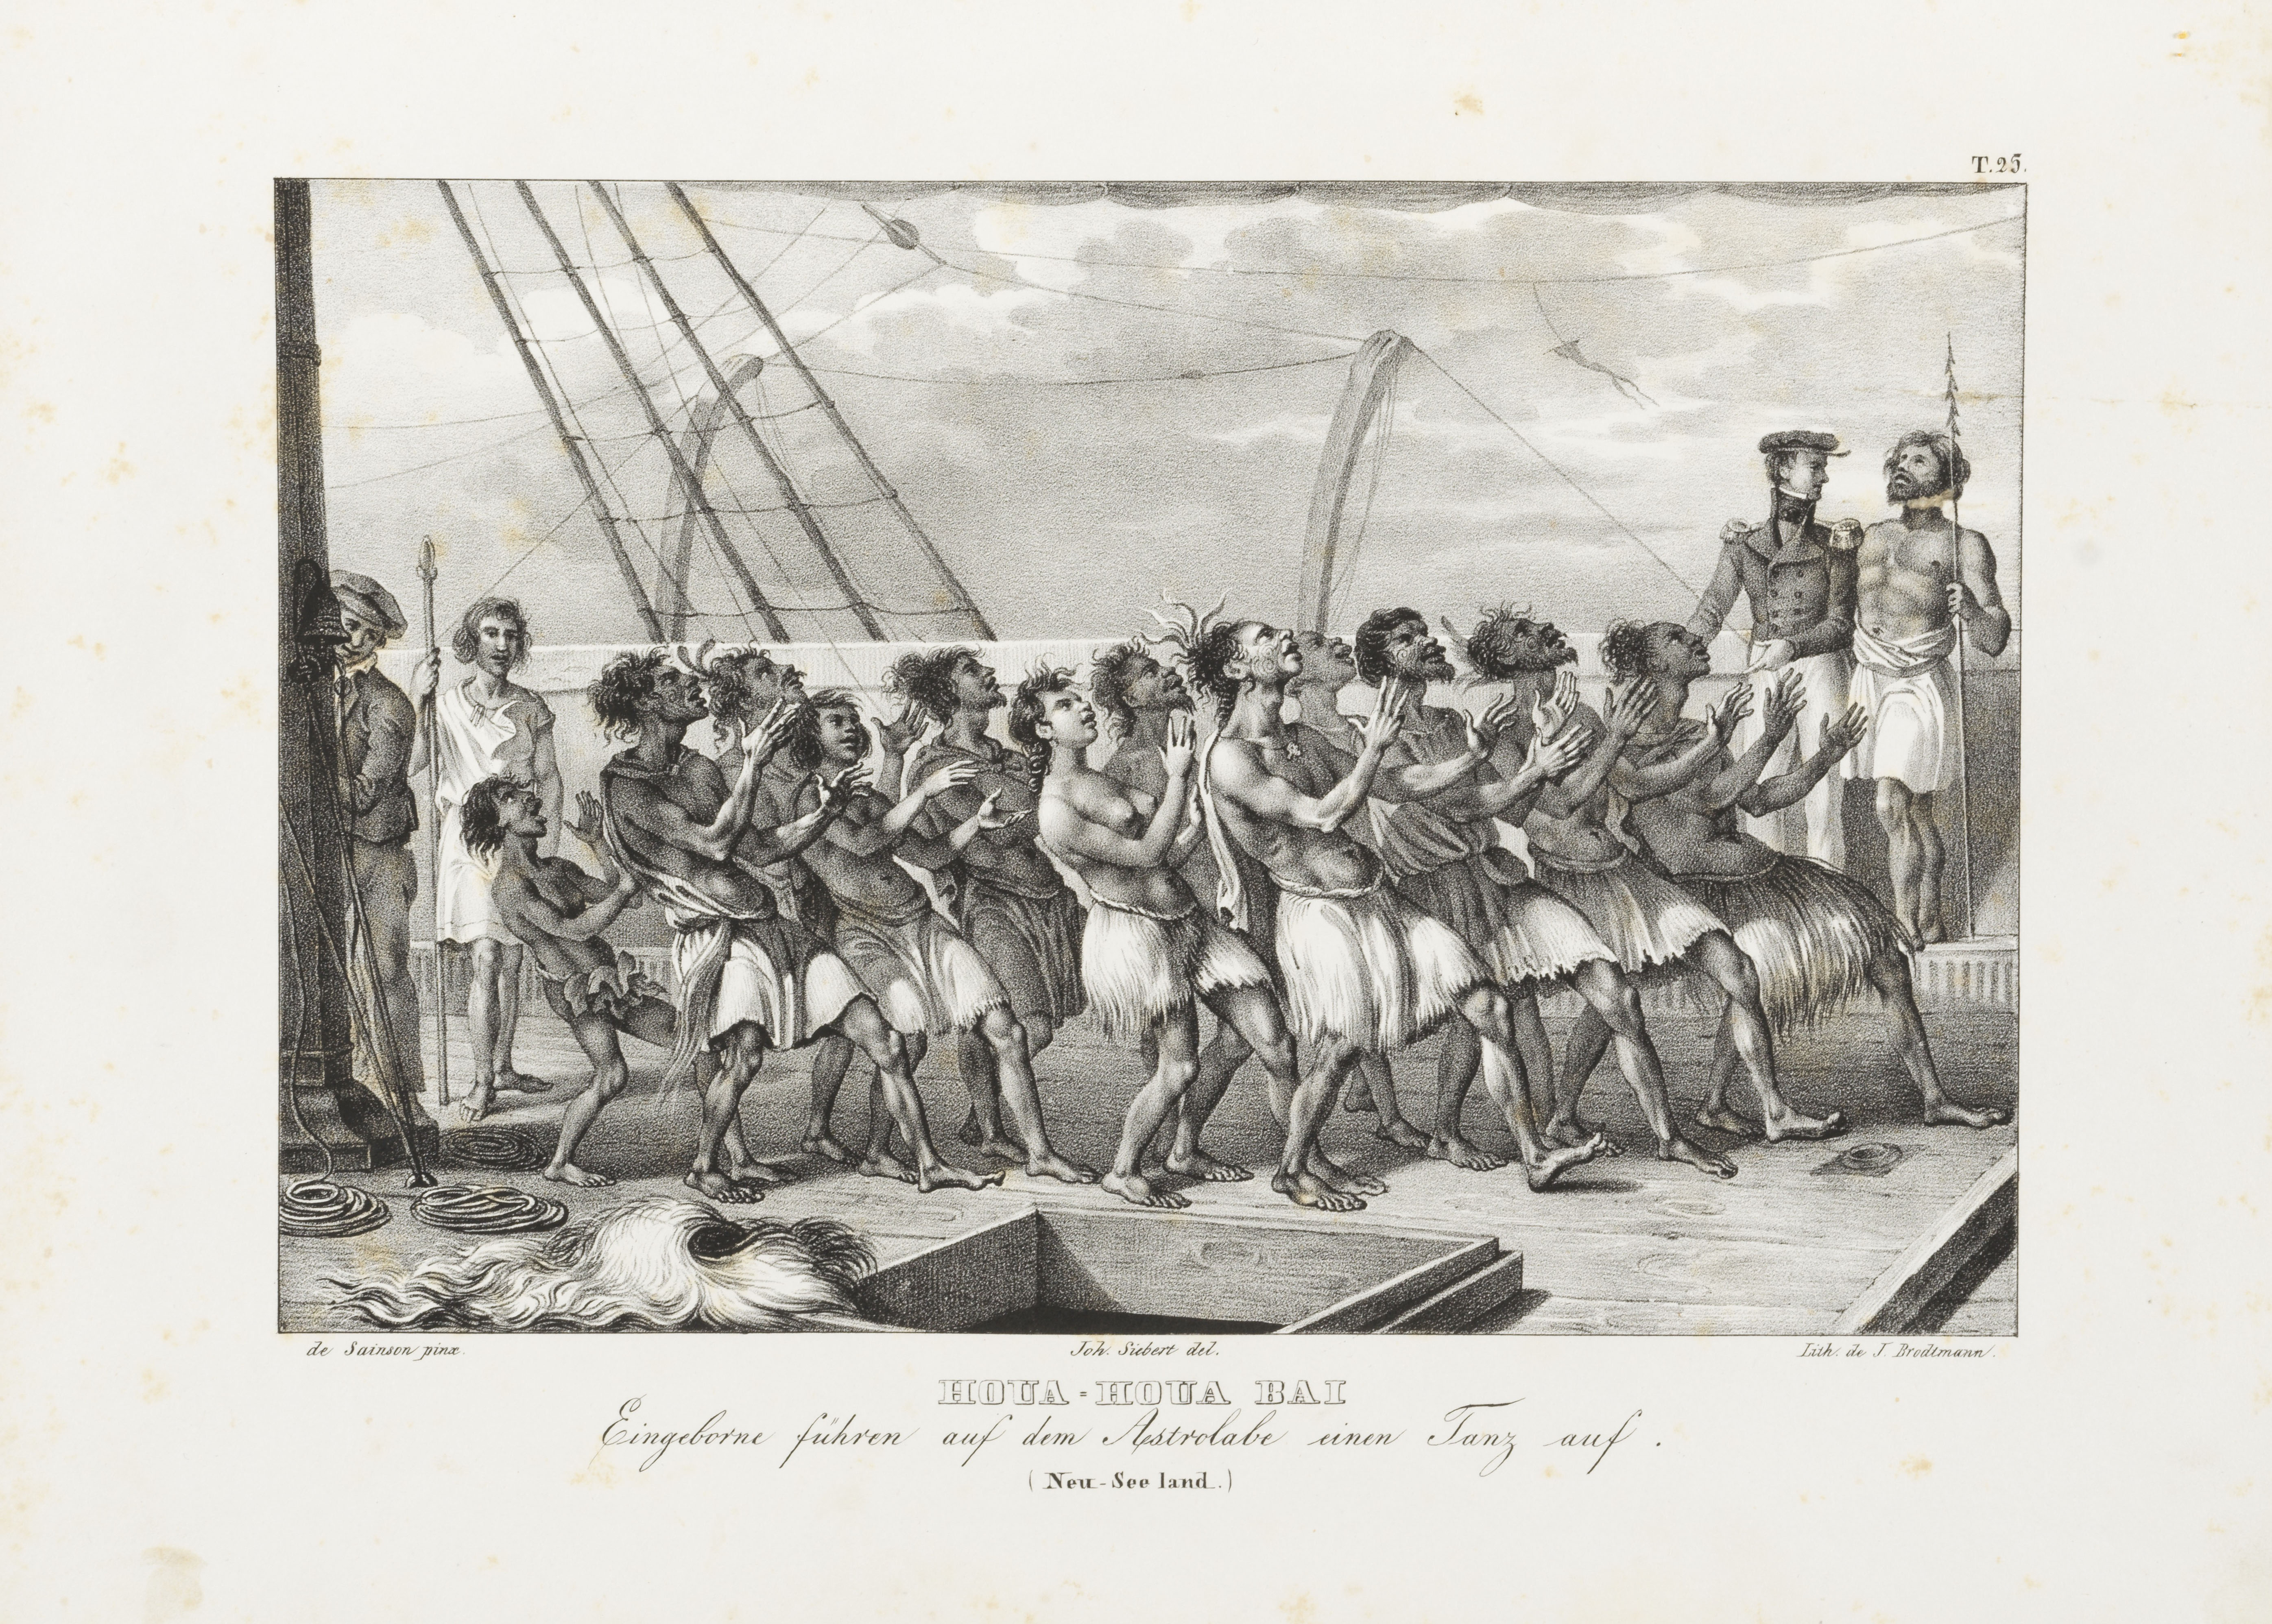 T.25.
de Sainson pinx. Joh. Siebert del. Lith. de J. Brodtmann.
HOUA-HOUA BAI
Eingeborne führen auf dem Astrolabe einen Tanz auf.
(Neu-See land.)